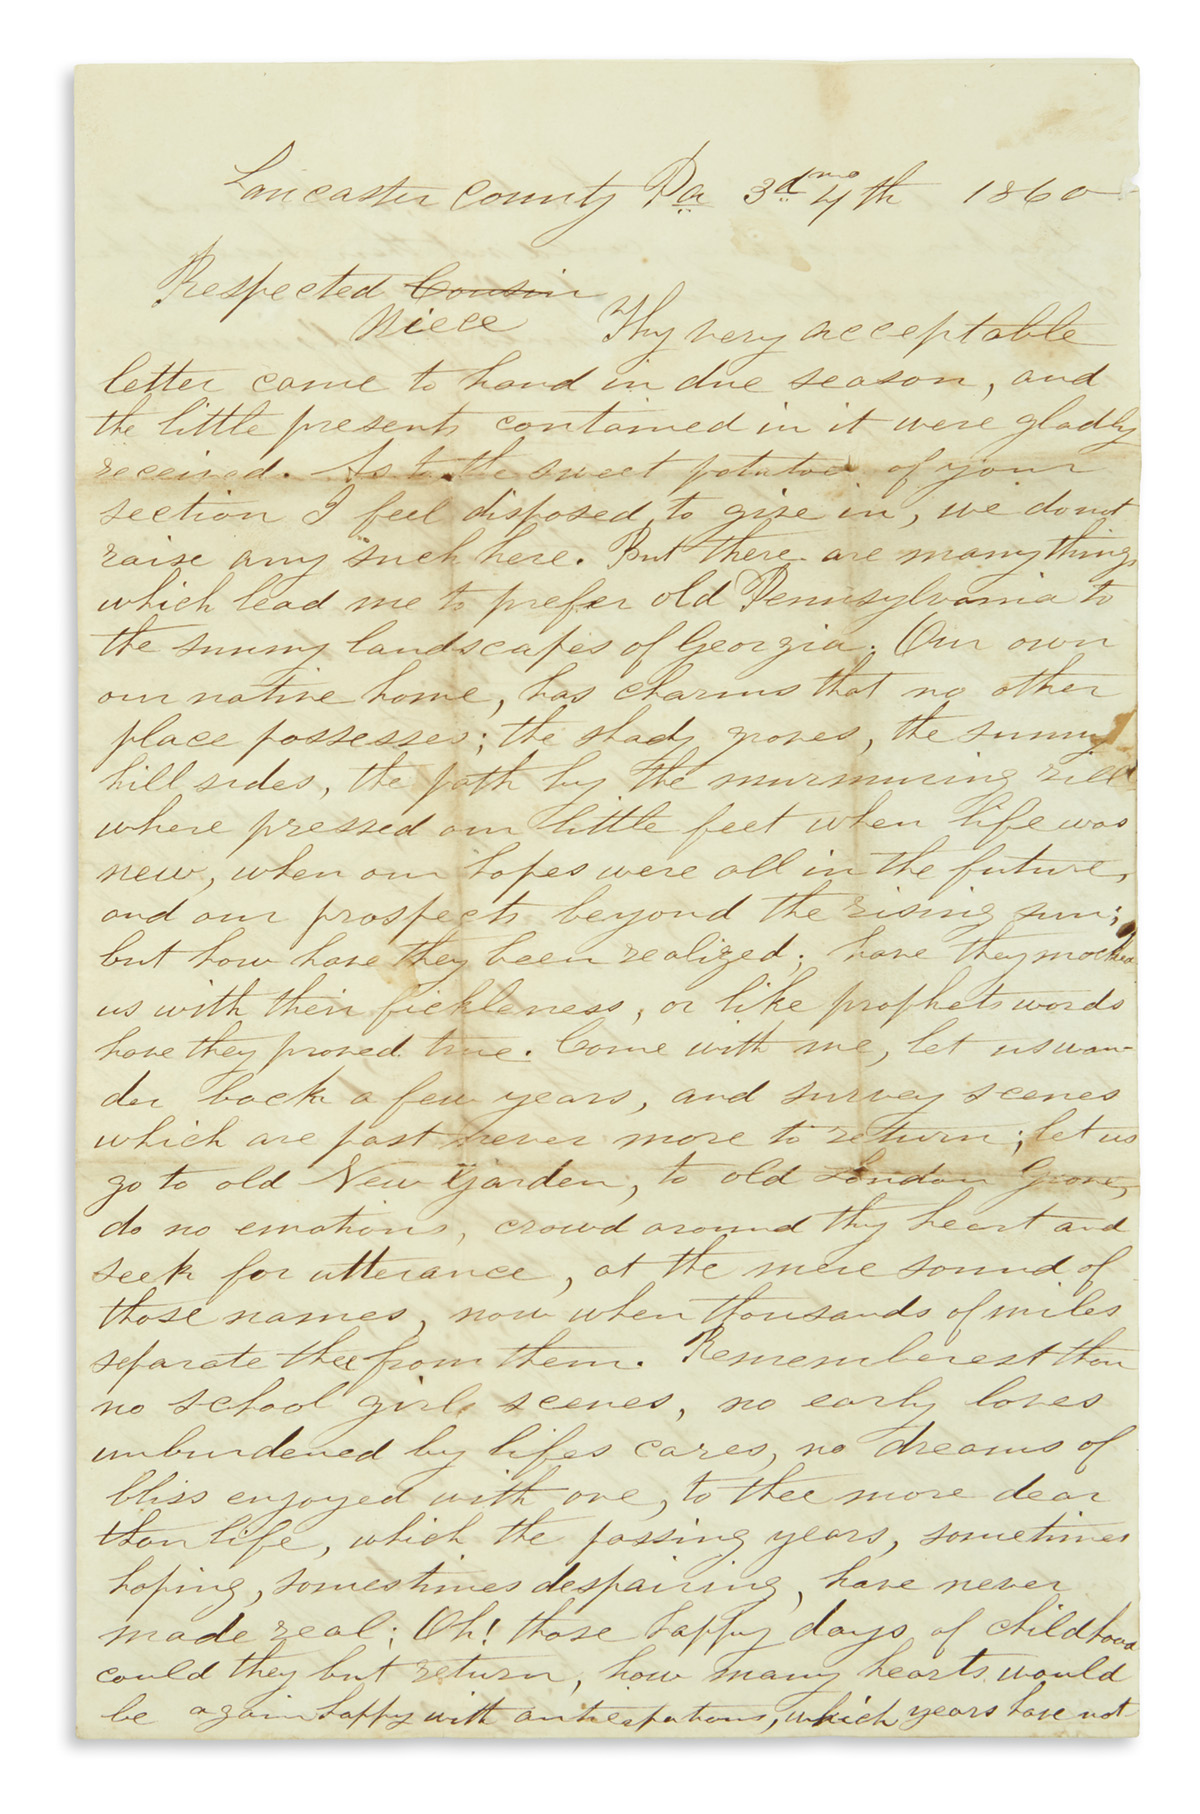 Lancaster County Pa 3d mo 4th 1860
Respected Cousin
Niece Thy very acceptable
letter came to hand in due season, and
the little presents contained in it were gladly
received. As to the sweet potatoes of your
section I feel disposed to give in, we do not
raise any such here. But there are many things
which lead me to prefer old Pennsylvania to
the sunny landscapes of Georgia. Our own
our native home, has charms that no other
place possesses; the shady groves, the sunny
hill sides, the path by the murmuring rill
where pressed our little feet when life was
new, when our hopes were all in the future,
and our prospects beyond the rising sun;
but how have they been realized; have they mocked
us with their fickleness, or like prophets words
have they proved true. Come with me, let us wan-
der back a few years, and survey scenes
which are past never more to return; let us
go to old New Garden, to old London Grove,
do no emotions, crowd around thy heart and
seek for utterance, at the mere sound of
those names, now when thousands of miles
separate thee from them. Rememberest thou
no school girl scenes, no early loves
unburdened by lifes cares, no dreams of
bliss enjoyed with one, to thee more dear
than life, which the passing years, sometimes
hoping, somestimes despairing, have never
made real; Oh! those happy days of childhood
could they but return, how many hearts would
be again happy with anticipations, which years have not